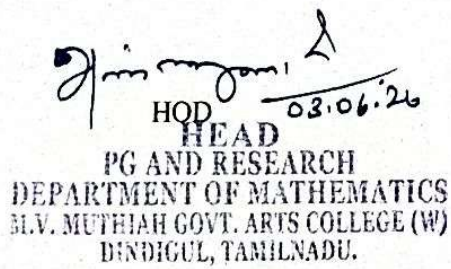 03.06.26
HOD
HEAD
PG AND RESEARCH
DEPARTMENT OF MATHEMATICS
M.V. MUTHIAH GOVT. ARTS COLLEGE (W)
DINDIGUL, TAMILNADU.